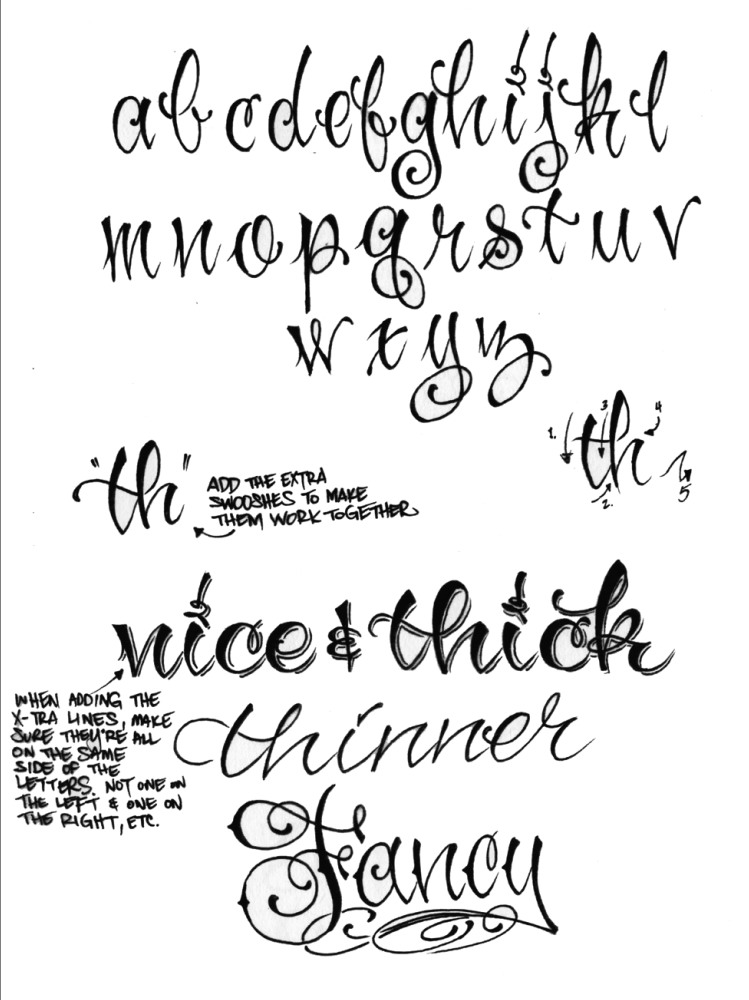 a b c d e f g h i j k l
m n o p q r s t u v
w x y z
1. 3 th 4
2. 5
"th" ADD THE EXTRA
SWOOSHES TO MAKE
THEM WORK TOGETHER
nice & thick
WHEN ADDING THE
X-TRA LINES, MAKE
SURE THEY'RE ALL
ON THE SAME
SIDE OF THE
LETTERS. NOT ONE ON
THE LEFT & ONE ON
THE RIGHT, ETC.
thinner
Fancy